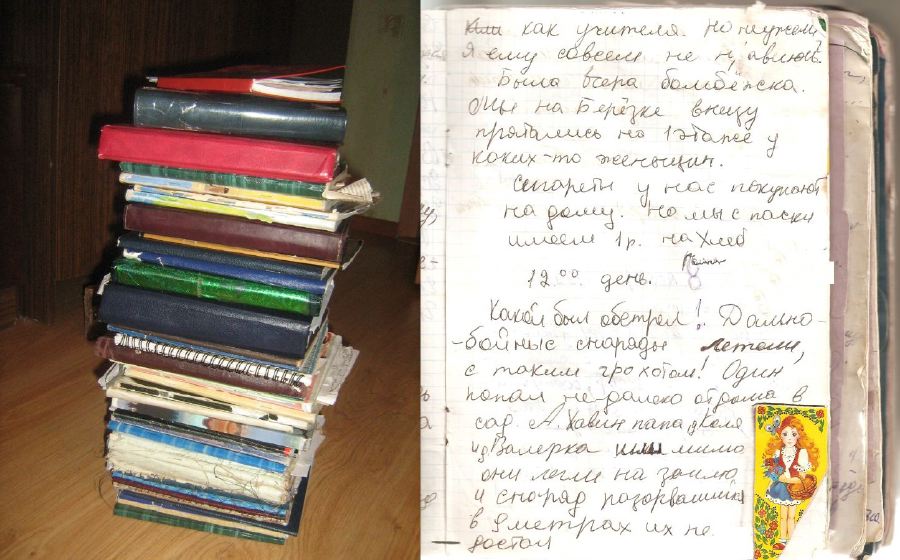 как учителя. Но неужели
Я ему совсем не нравлюсь?
Была вчера бомбёжка.
Мы на Берёзке внизу
прятались на 1 этаже у
каких-то женьщин.
Сигареты у нас покупают
на дому. Но мы с пачки
имеем 1 р. на Хлеб
12 00 день.
Какой был обстрел! Дально-
-бойные снаряды летели,
с таким грохотом! Один
попал не далеко от дома в
сад. А. Хавин папа Коля
и Валерка шли мимо
они легли на землю
и снаряд разорвавшийся
в 8 метрах их не
достал